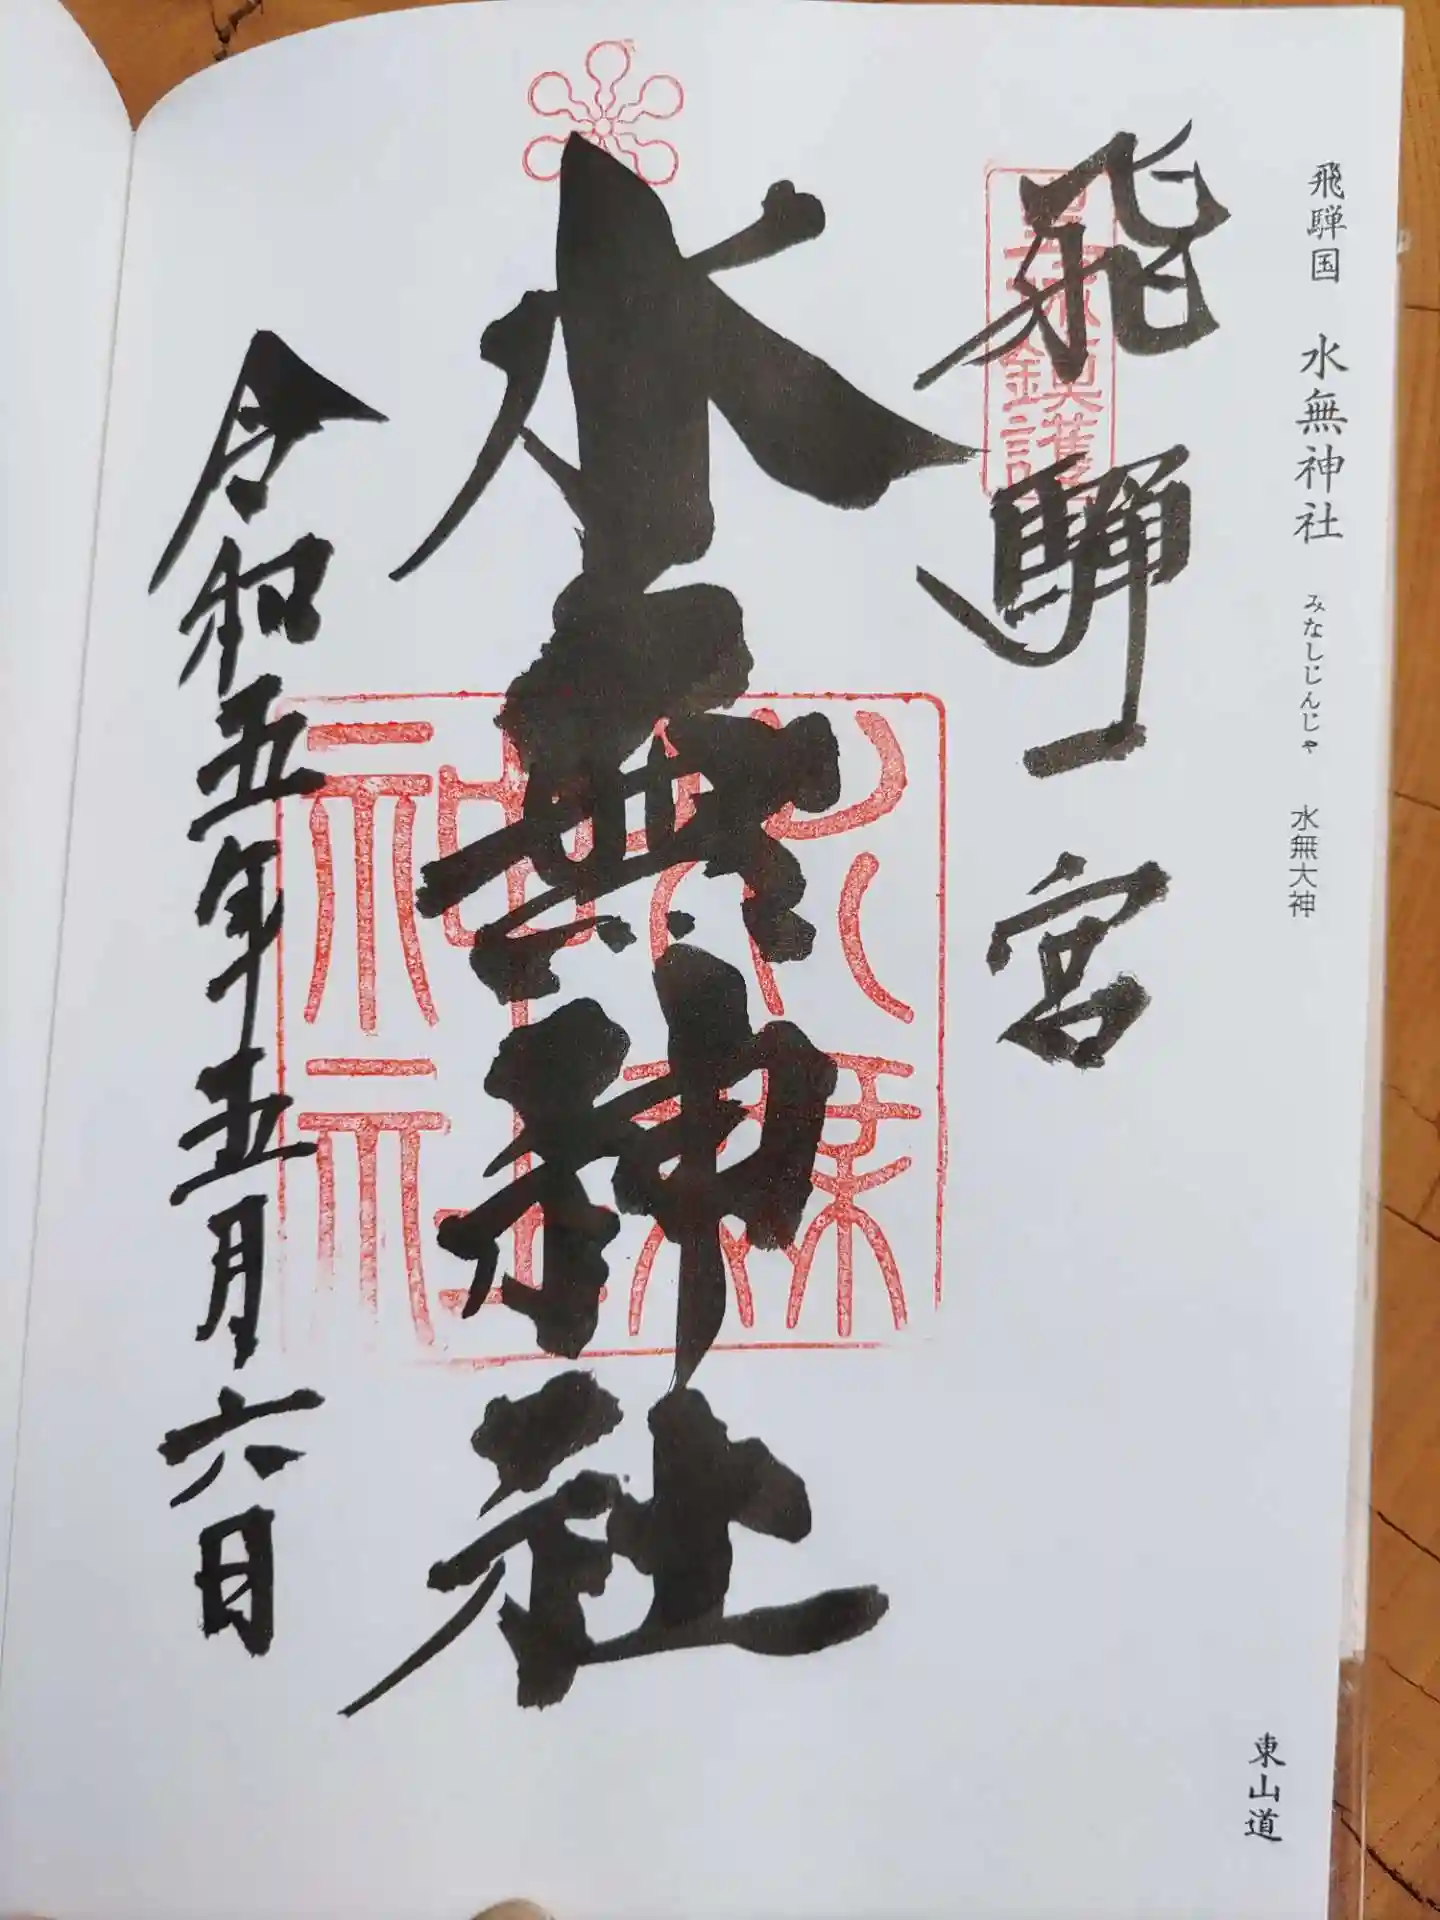 飛騨国 水無神社 みなしじんじゃ 水無大神
東山道
飛騨一宮
水無神社
令和五年五月六日
水無神社